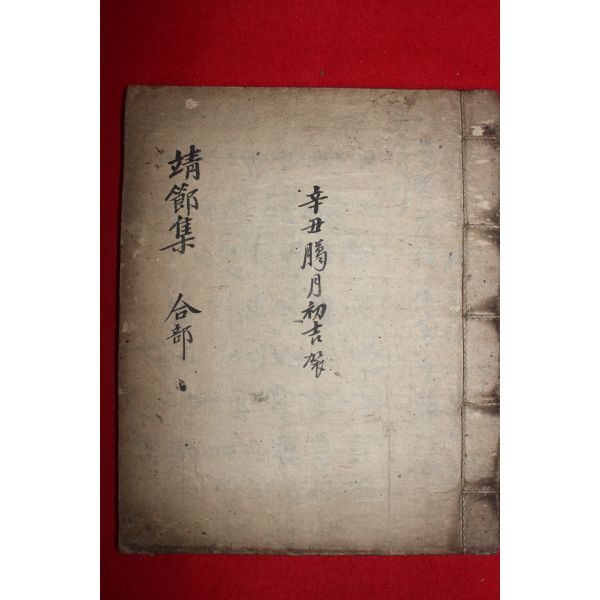 辛丑臈月初吉裝
靖節集 合部